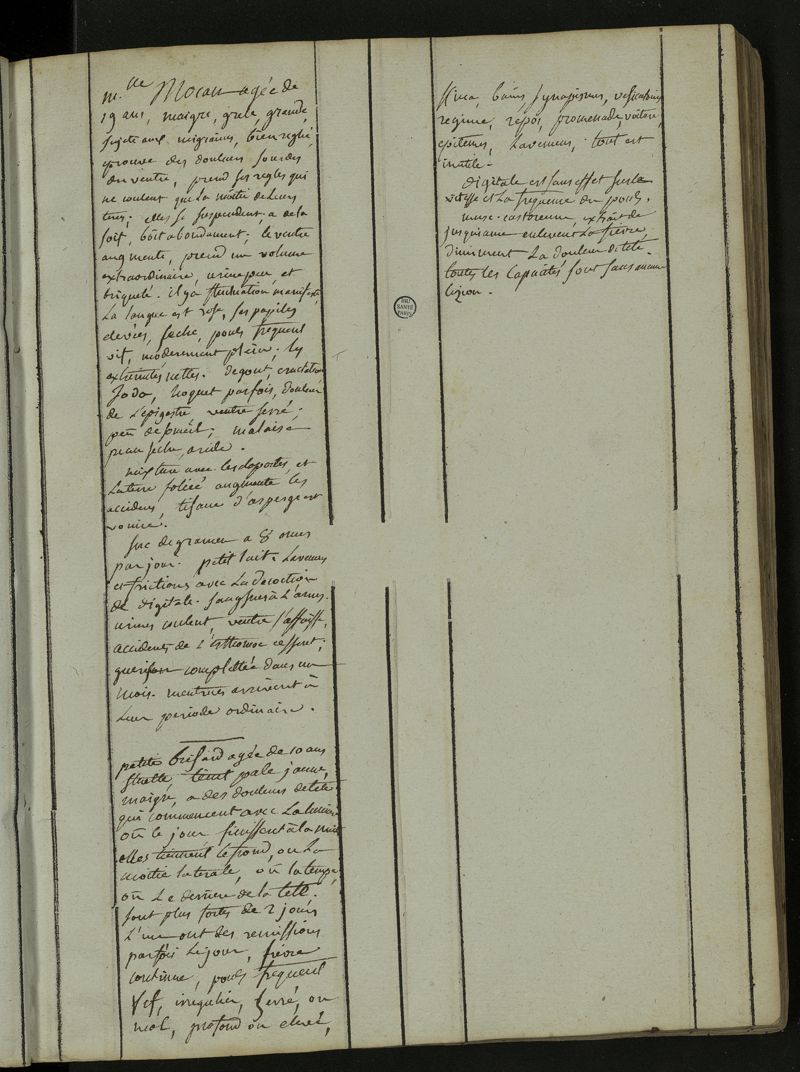 m.lle Moran agée de
19 ans, maigre, grele, grande,
sujete aux migraines, bien reglée,
eprouve des douleurs sourdes
du ventre, prend ses regles qui
ne coulent que la moitié de leurs
tems; elles se suspendent, a de la
soif, boit abondament; le ventre
augmente, prend un volume
extraordinaire, urine peu et
briqueté. il y a fluctuation manifeste
la langue est rose, ses papiles
elevées, seche, pouls frequent
vif, moderement plein; les
extremités nettes. degout, eructation
hoquet parfois, douleur
de l'epigastre ventre serré;
peu de someil; malaise
peau seche, aride.
mixture avec les cloportes, et
la terre foliée augmente les
accidens, tisane d'asperge est
vomie.
suc de gramen a 8 onces
par jour. petit lait. lavemens
et frictions avec la decoction
de digitale. sangsues à l'anus.
urines coulent, ventre s'affaisse,
accidents de l'esthomac cessent;
guerison complettée dans un
mois. menstrues arrivent à
leur periode ordinaire.
petite Brisard agée de 10 ans
fluette teint pale jaune,
maigre, a des douleurs de tete
qui commencent avec la lumiere
ou le jour finissent à la nuit
elles tiennent le frond, ou la
moitié laterale, ou la tempe,
ou le derriere de la tete.
sont plus fortes de 2 jours
l'un ont des remissions
parfois le jour, fievre
continue, pouls frequent
vif, irregulier, serré, ou
mol, profond ou elevé,
kina, bains synapismes, vesicatoires
regime, repos, promenade, voiture,
epitemes, lavemens, tout est
inutile.
digitale est sans effet sur la
vitesse et la frequence du pouls.
musc. castoreum, extrait de
jusquiame enlevent la fievre,
diminuent la douleur de tete.
toutes les capacités sont sans aucune
lezion.
BIU
SANTÉ
PARIS